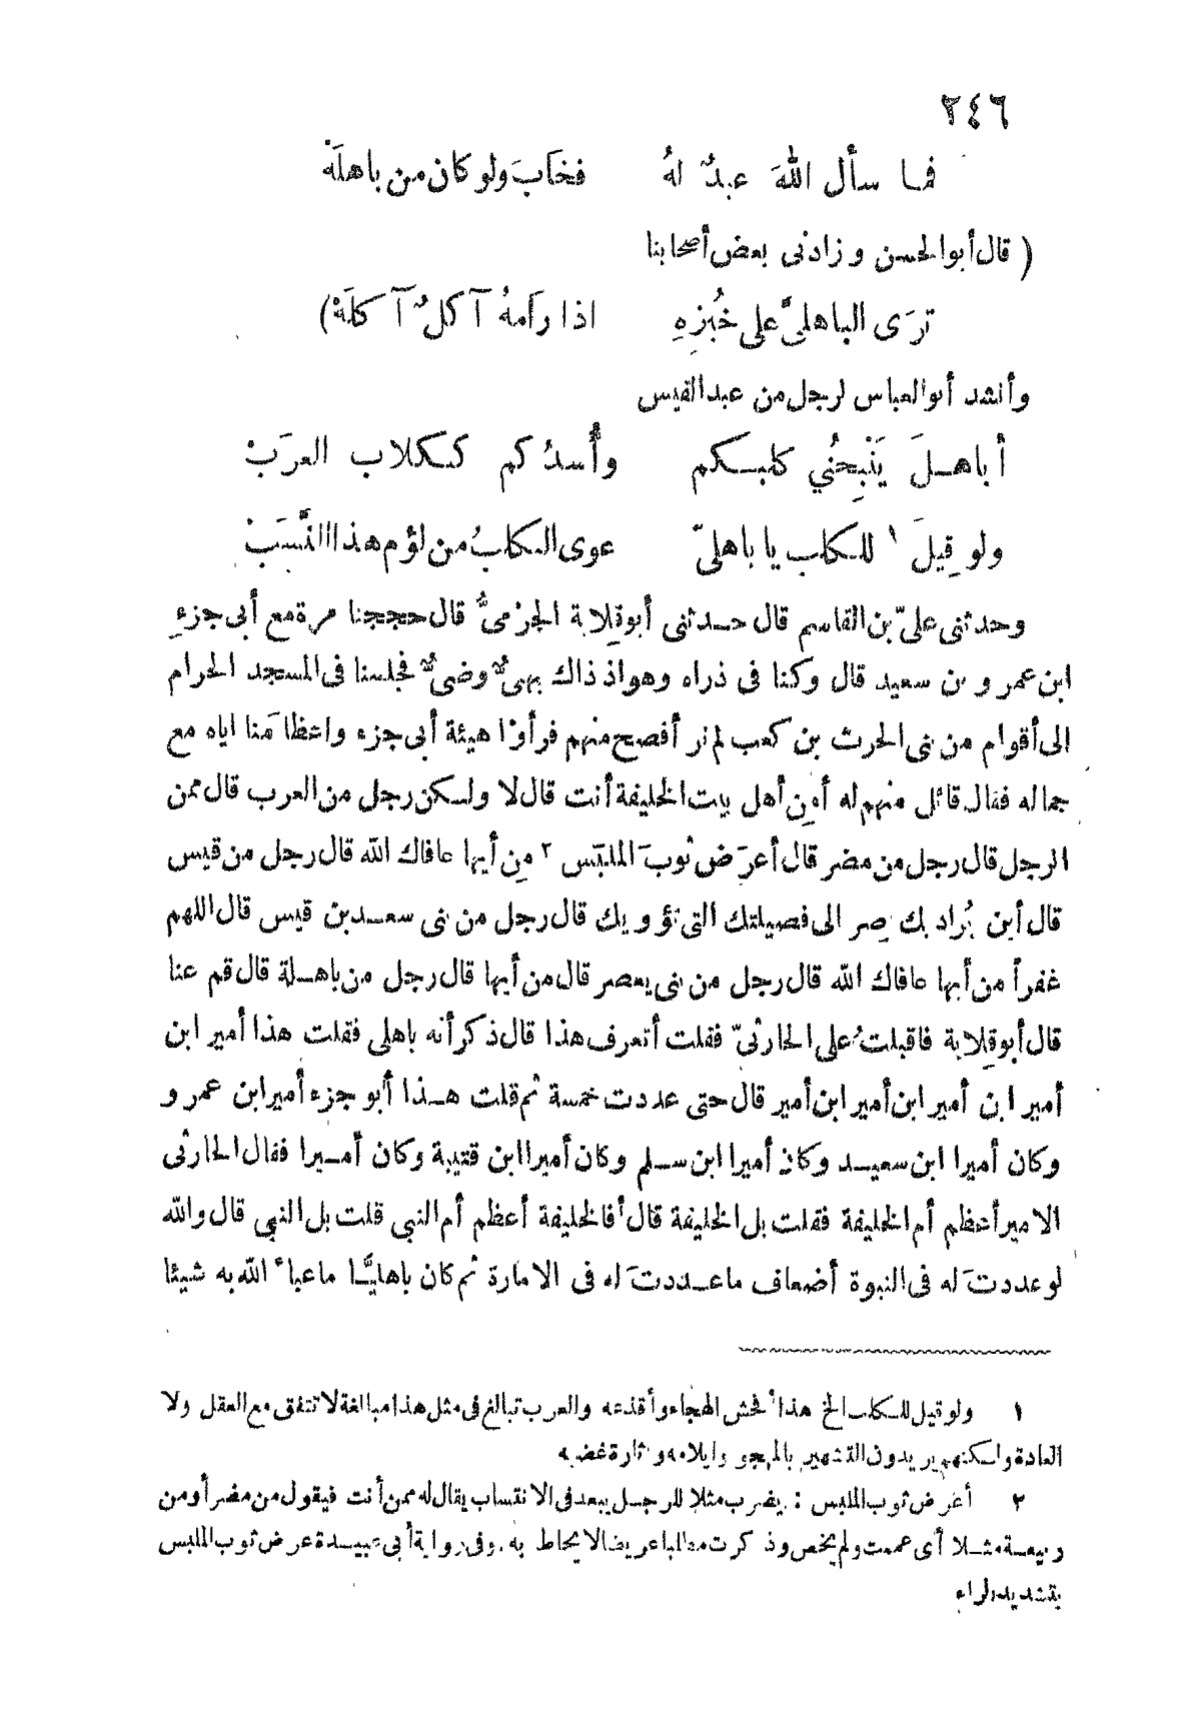 ٢٤٦
فما سأل اللهَ عبدٌ لهُ فخَابَ ولو كان من باهلَهْ
( قال أبو الحسن وزادنى بعض أصحابنا
ترَى الباهلىَّ على خُبزِهِ اذا رَامهُ آكلٌ آكلَهْ)
وأنشد أبو العباس لرجل من عبد القيس
أباهلَ يَنْبِحُنِي كلبكم وأُسدُكم ككلاب العرَبْ
ولو قِيلَ ١ للكلب يا باهلىّ عوى الكلبُ من لؤم هذا النَّسَبْ
وحدثنى علىّ بن القاسم قال حدثنى أبو قِلابة الجرْمىُّ قال حججنا مرة مع أبى جزءِ
ابن عمرو بن سعيد قال وكنا فى ذراه وهو اذ ذاك بهىٌّ وضىٌّ فجلسنا فى المسجد الحرام
الى أقوام من بنى الحرث بن كعب لم نر أفصح منهم فرأوْا هيئة أبى جزء واعظامَنا اياه مع
جماله فقال قائل منهم له أمِن أهل بيت الخليفة أنت قال لا ولكن رجل من العرب قال ممن
الرجل قال رجل من مضر قال أعرَض ثوبَ الملبَس ٢ مِن أيها عافاك الله قال رجل من قيس
قال أين يُراد بك صِر الى فصيلتك التى تؤويك قال رجل من بنى سعد بن قيس قال اللهم
غفراً من أيها عافاك الله قال رجل من بنى يعصر قال من أيها قال رجل من باهلة قال قم عنا
قال أبو قِلابة فاقبلتُ على الحارثىّ فقلت أتعرف هذا قال ذكر أنه باهلى فقلت هذا أمير ابن
أمير ابن أمير ابن أمير ابن أمير قال حتى عددت خمسة ثم قلت هذا أبو جزء أمير ابن عمرو
وكان أميرا ابن سعيد وكان أميرا ابن سلم وكان أميرا ابن قتيبة وكان أميرا فقال الحارثى
الامير أعظم أم الخليفة فقلت بل الخليفة قال أفالخليفة أعظم أم النبى قلت بل النبى قال والله
لو عددتَ له فى النبوة أضعاف ما عددتَ له فى الامارة ثم كان باهليًّا ما عبأ الله به شيئا
١ ولو قيل للكلب الخ هذا أفحش الهجاء وأقذعه والعرب تبالغ فى مثل هذا مبالغة لا تتفق مع العقل ولا
العادة ولكنهم يريدون التشهير بالمهجو وإيلامه وإثارة غضبه
٢ أعرض ثوب الملبس : يضرب مثلا للرجل يبعد فى الانتساب يقال له ممن أنت فيقول من مضر أو من
ربيعة مثلا أى عممت ولم يخص وذكرت مطلبا عريضا لا يحاط به . وفى رواية أبى عبيدة عرض ثوب الملبس
بتشديد الراء